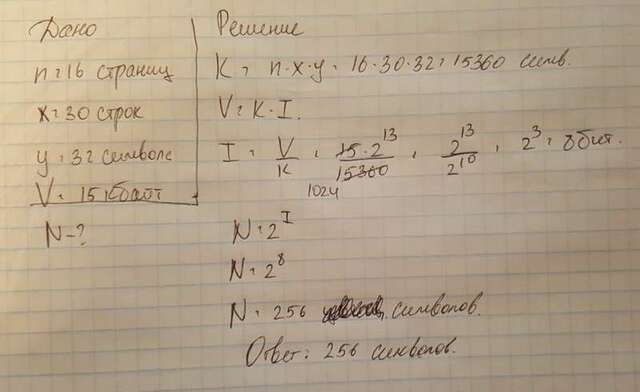 Дано
n = 16 страниц
x = 30 строк
y = 32 символа
V = 15 Кбайт
N - ?
Решение
K = n · x · y = 16 · 30 · 32 = 15360 симв.
V = K · I.
I = V/K = 15 · 2^13/15360 = 2^13/2^10 = 2^3 = 8 бит.
1024
N = 2^I
N = 2^8
N = 256 символов.
Ответ: 256 символов.